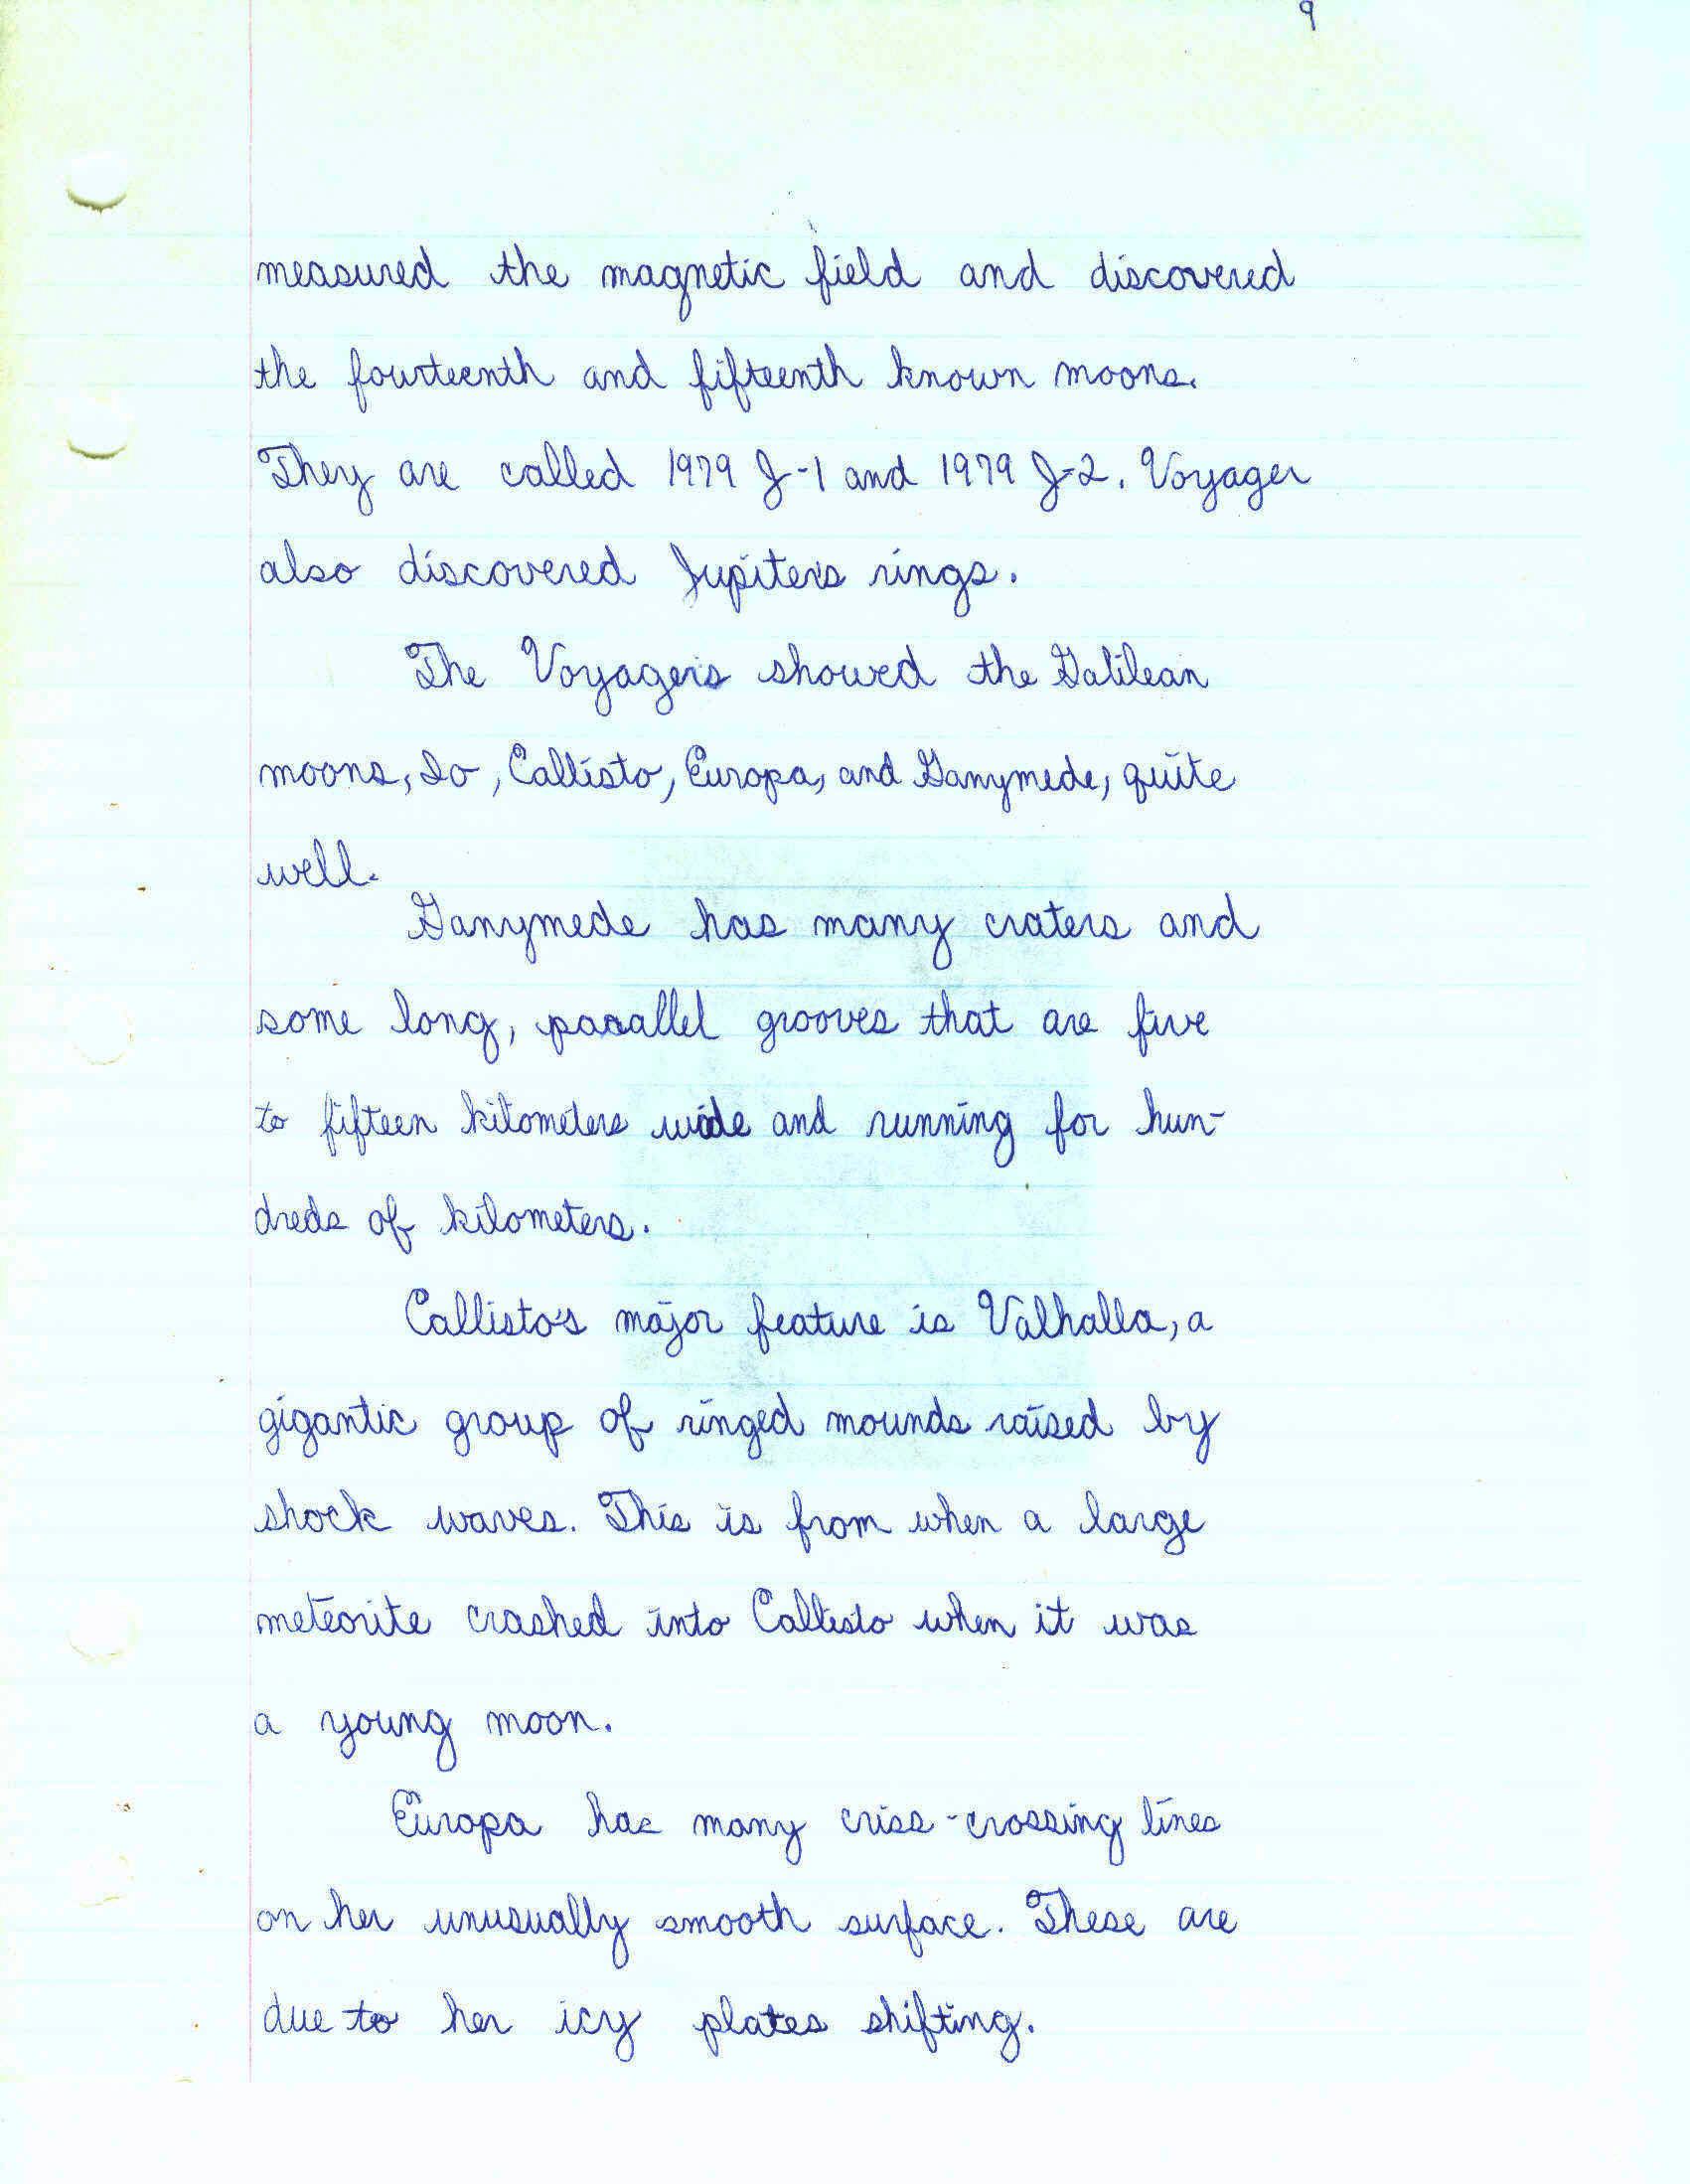 9
measured the magnetic field and discovered
the fourteenth and fifteenth known moons.
They are called 1979 J-1 and 1979 J-2. Voyager
also discovered Jupiter's rings.
The Voyagers showed the Galilean
moons, Io, Callisto, Europa, and Ganymede, quite
well.
Ganymede has many craters and
some long, parallel grooves that are five
to fifteen kilometers wide and running for hun-
dreds of kilometers.
Callisto's major feature is Valhalla, a
gigantic group of ringed mounds raised by
shock waves. This is from when a large
meteorite crashed into Callisto when it was
a young moon.
Europa has many criss-crossing lines
on her unusually smooth surface. These are
due to her icy plates shifting.